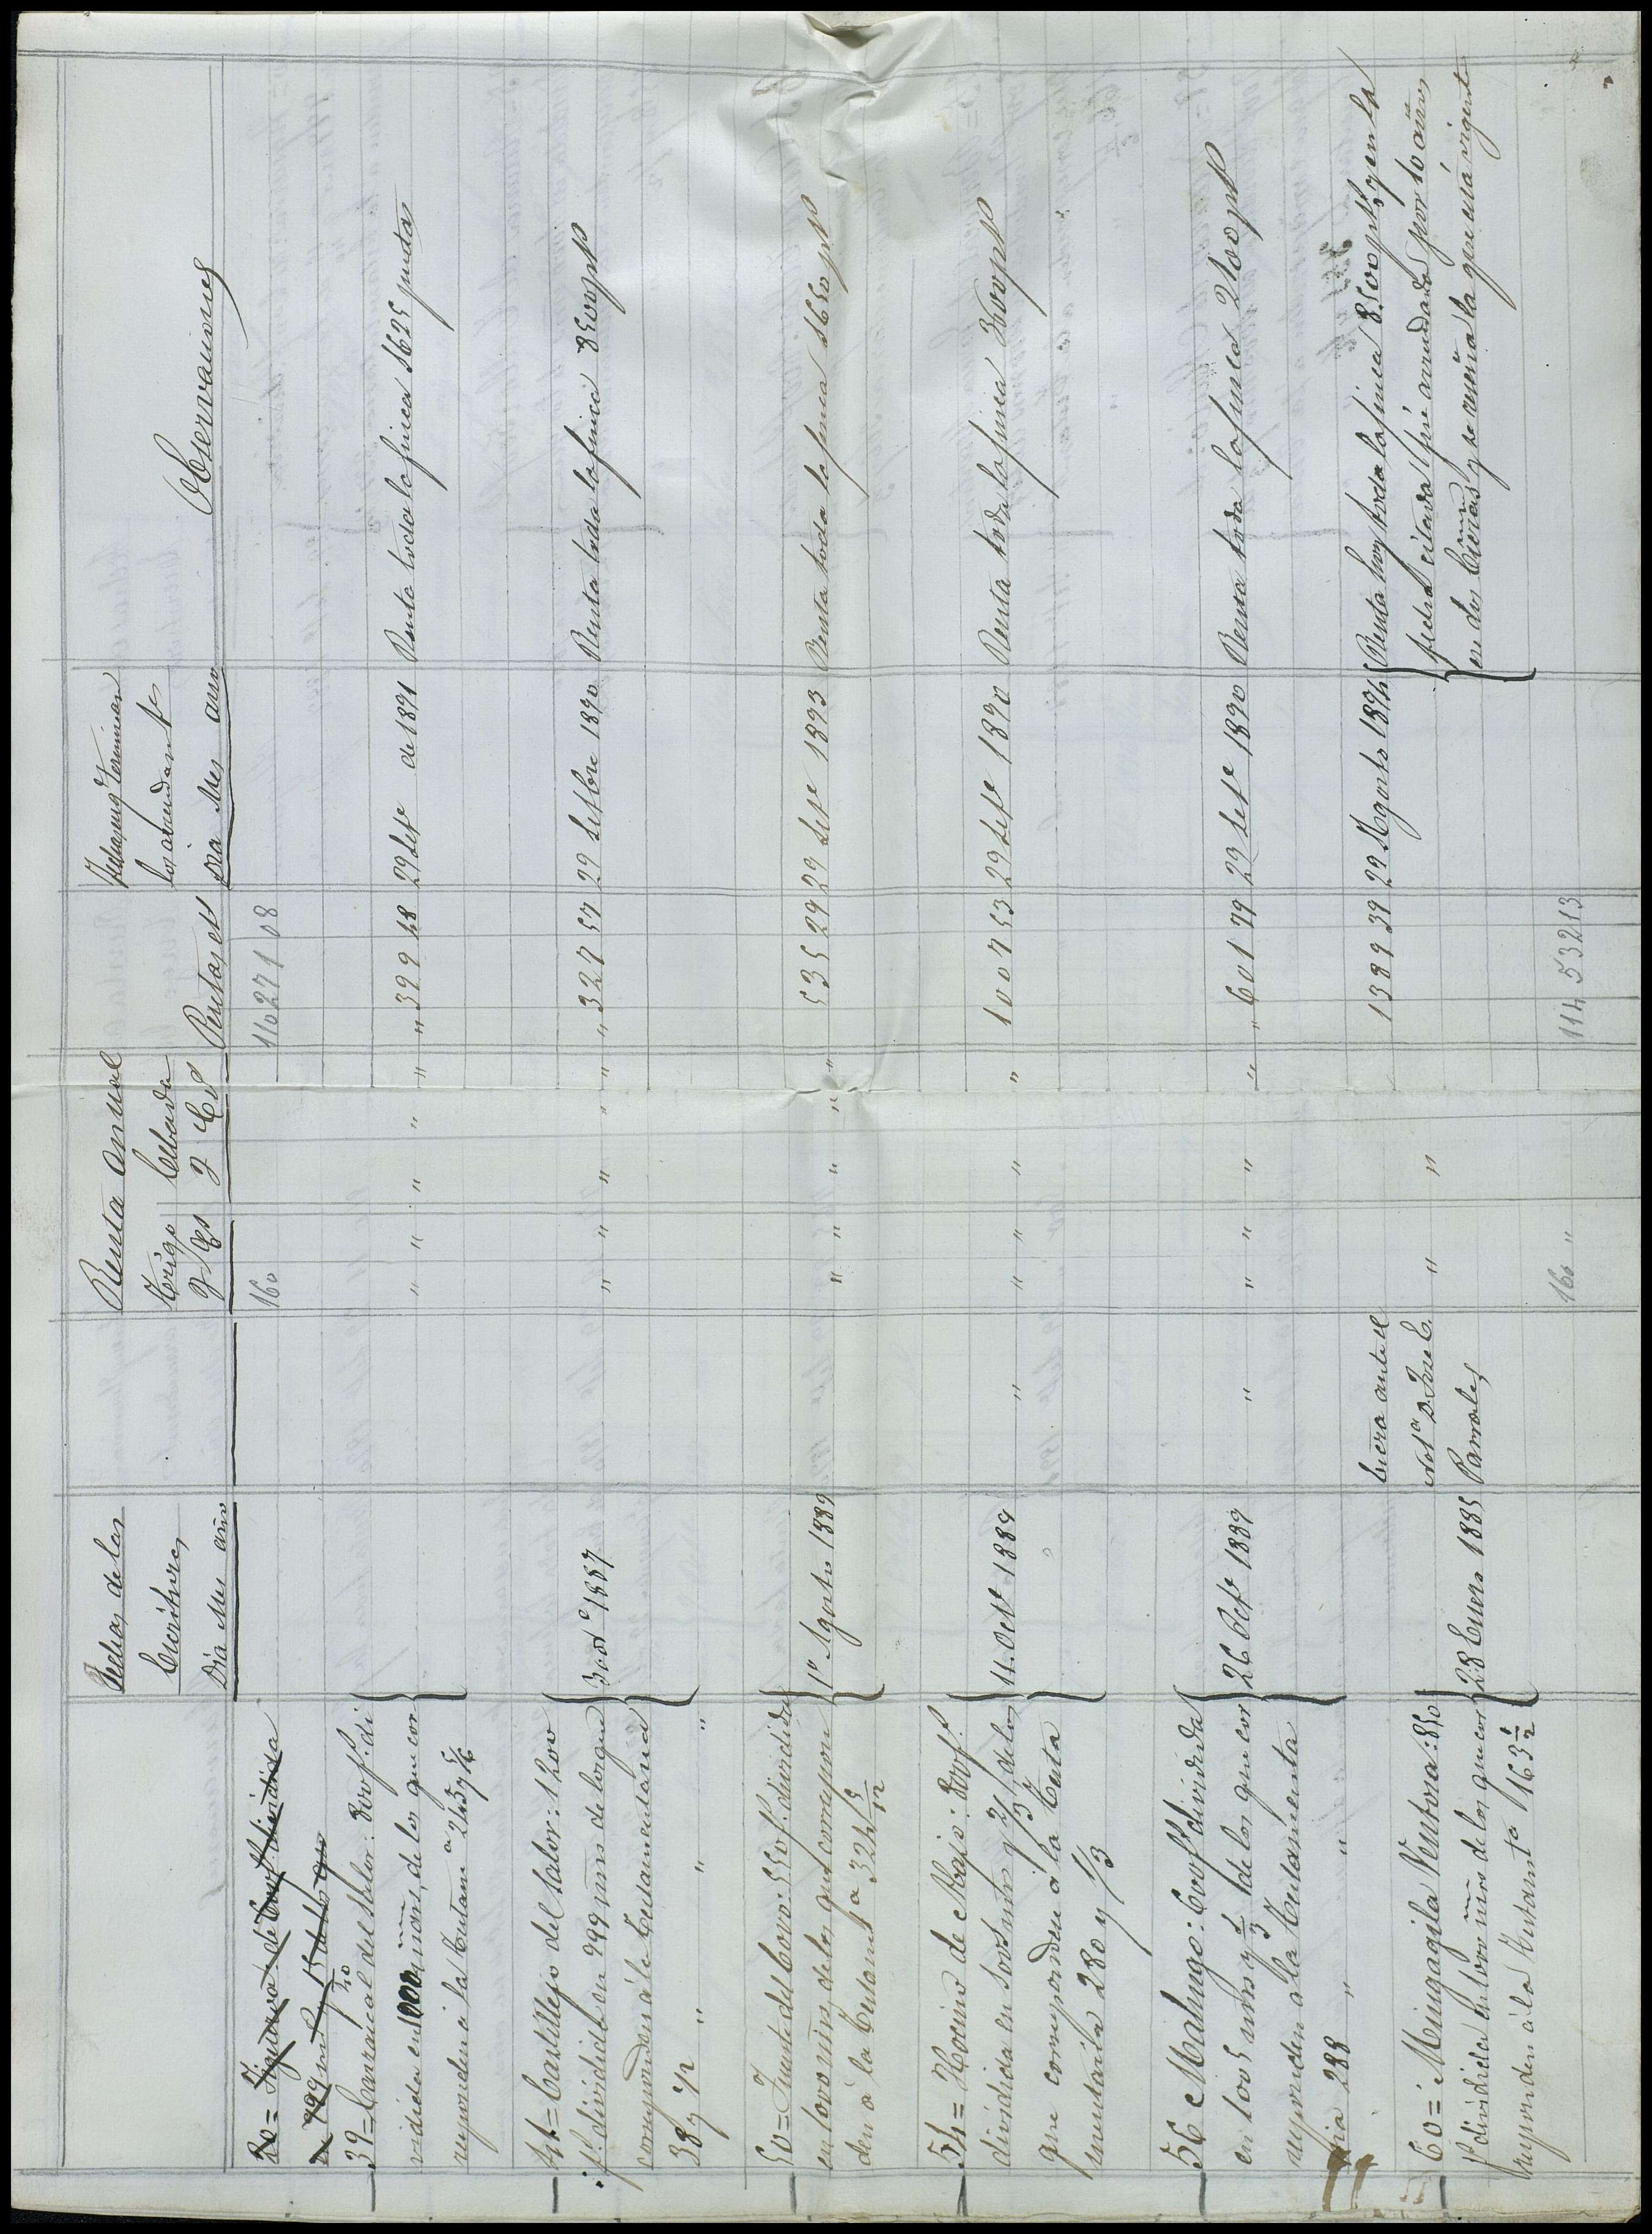 Fechas de las
Escrituras
Dia Mes año
Renta Anual
Trigo Cebada
Pesetas
Fechas en q. terminan
los arrendam.tos
Dia Mes año
Observaciones
160 110271 08
20= Figueroa de
39= Carrascal del Valor: 800 f. di
vidida en 1000 mm.s, de los que cor
responden á la Testam.a 245 y 5/6
" " " " " 399 48 29 Set.e de 1891 Renta toda la finca 1625 pesetas
44= Castillejo del Valor: 1200
f.s dividida en 999 mm.s de los que
corresponden á la Testamentaria
38 y 1/2 " " "
3 Nov.e 1887 " " " " " 327 57 29 Setbre 1890 Renta toda la finca 8500 pts
50= Fuente del Corro: 550 f. dividida
en 1000 mm.s de los que correspon
den á la Testament.a 324 5/12
1.º Agosto 1889 " " " " " 535 29 29 Set.e 1893 Renta toda la finca 1650 pts
54= Hocino de Abajo: 800 f.
dividida en 1005 mm.s y 2/3 de los
que corresponden á la Testa
mentaria 280 y 1/3
11. Oct.e 1889 " " " " " 1007 53 29 Set.e 1890 Renta toda la finca 3600 pts
56 Malhugo: 600 f.s dividida
en 1005 mm.s y 1/3 de los que cor
responden a la Testamenta
ria 288 " "
26 Oct.e 1889 " " " " " 601 79 29 Set.e 1890 Renta toda la finca 2100 pts
60= Mingagila Ventosa: 850
f.s dividida en 1000 mm.s de los que cor
responden á la Testam.ta 163 1/2
28 Enero 1885
Escra ante el
Not.º D. José C.
Parrales
" " 1389 39 29 Agosto 1894
Renta hoy toda la finca 8.500 pts. y en la
fecha citada fué arrendada por 10 años
en dos Escras y se reseña la que está vigente
160 " 114 532 13